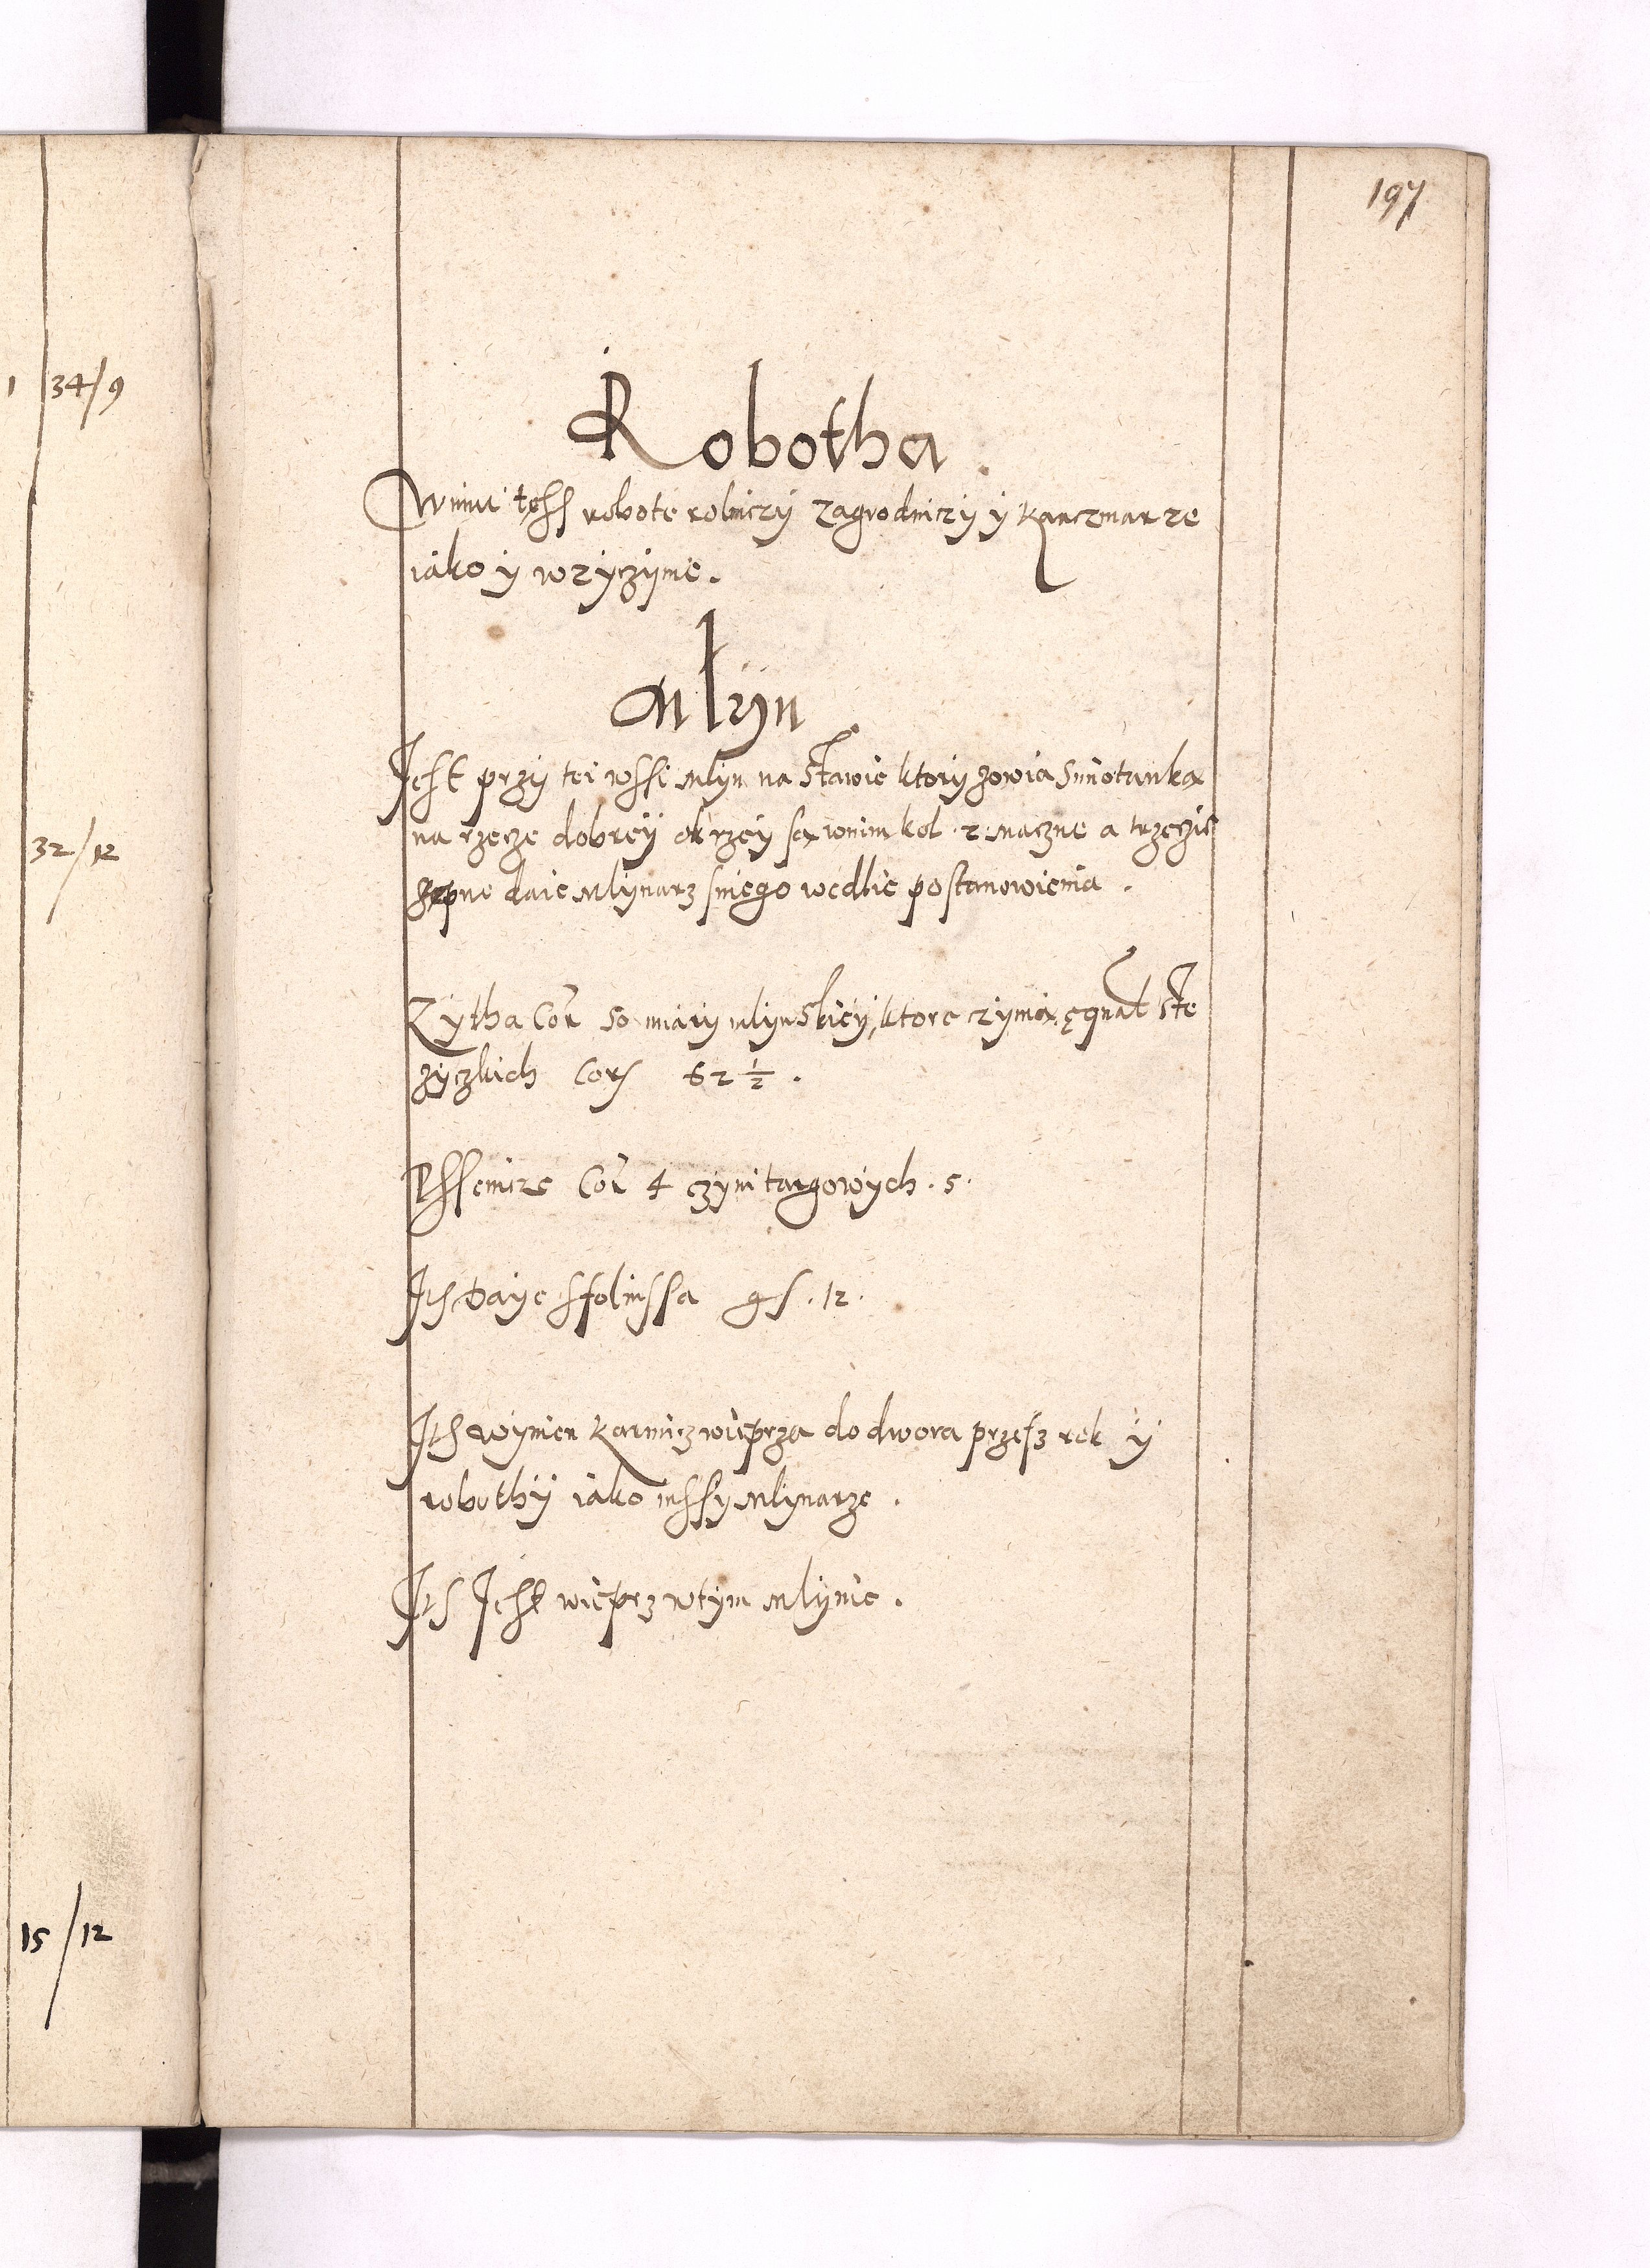 197
1 34/9
32/12
15/12
Robotha.
Winni tess robote rolniczy zagrodniczy y karczmarze
iako y w zyczynie.
Mlyn
Jest przy tei wssi mlyn na stawie ktory zowia Smiotanka
na rzecze dobrey sa wnim kol 2 maczne a trzeczie
daie mlynarz sniego wedlie postanowienia.
Zytha Cor 50 miary mlynskiey, ktore czynia, equal ste
zyczkich Cors 62 ½.
Pssenicze Cor 4 czyni targowych. 5.
Its daye sfolussa gs. 12.
Its wynien karmicz wieprza do dwora przesz rok y
robothy iako inssy mlynarze.
Its Jest wieprz wtym mlynie.